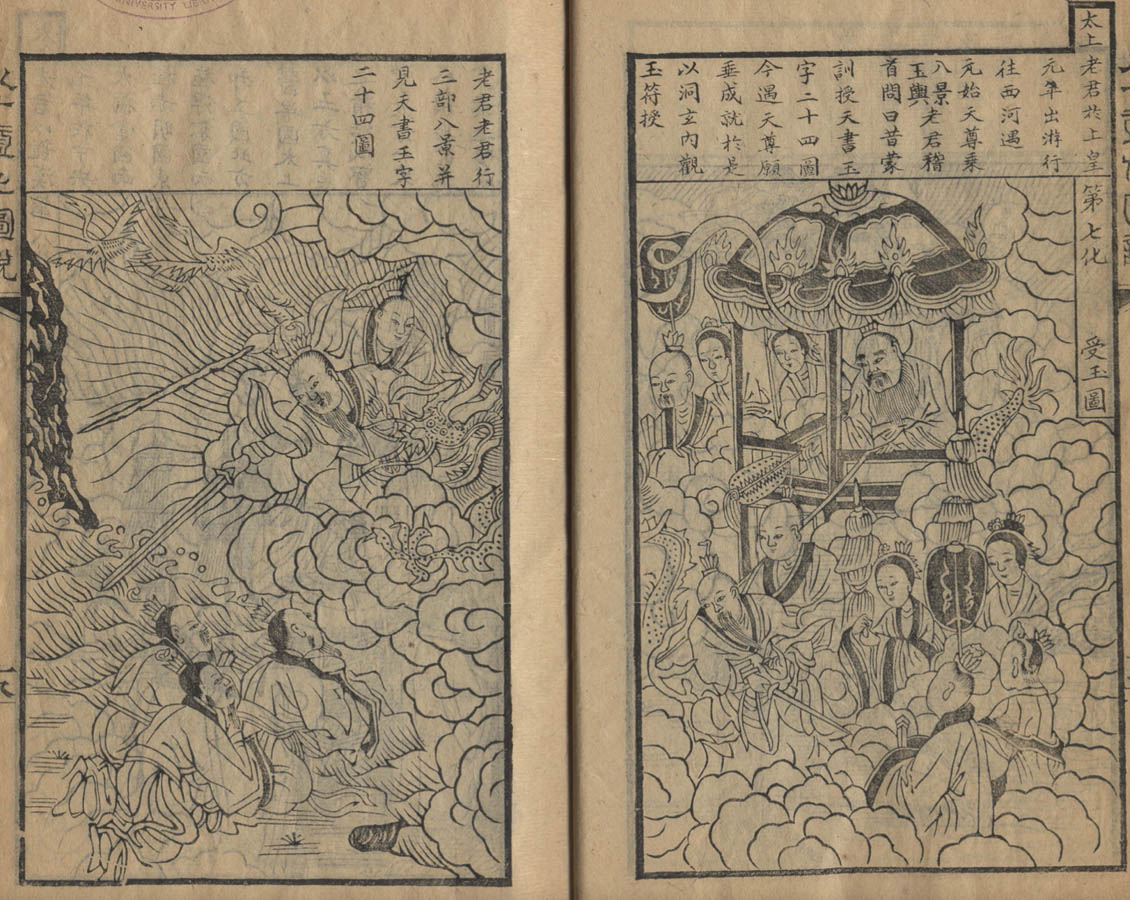 太上老君於上皇
元年出游行
往西河遇
元始天尊乘
八景
玉輿老君稽
首問曰昔蒙
訓授天書玉
字二十四圖
今遇天尊願
垂成就於是
以洞玄內觀
玉符授
第七化
受玉圖
老君老君行
三部八景并
見天書玉字
二十四圖
UNIVERSITY LIBRARY